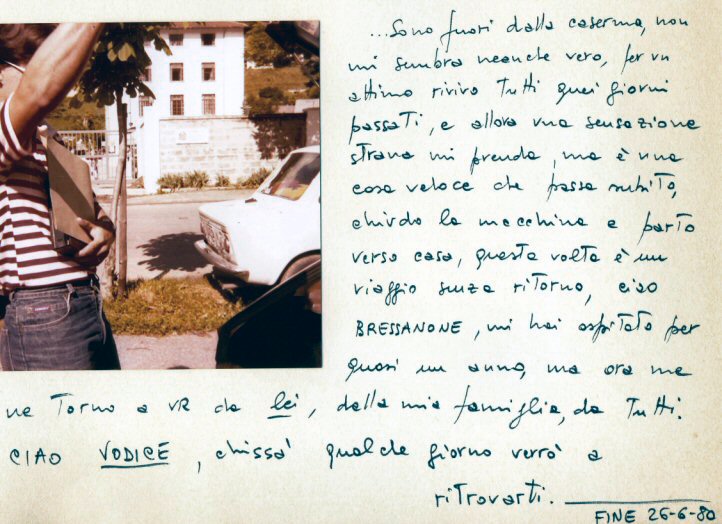 ...Sono fuori dalla caserma, non
mi sembra neanche vero, per un
attimo rivivo tutti quei giorni
passati, e allora una sensazione
strana mi prende, ma è una
cosa veloce che passa subito,
chiudo la macchina e parto
verso casa, questa volta è un
viaggio senza ritorno, ciao
BRESSANONE, mi hai ospitato per
quasi un anno, ma ora me
ne torno a VR da lei, dalla mia famiglia, da tutti.
CIAO VODICE, chissà qualche giorno verrò a
ritrovarti.
FINE 26-6-80